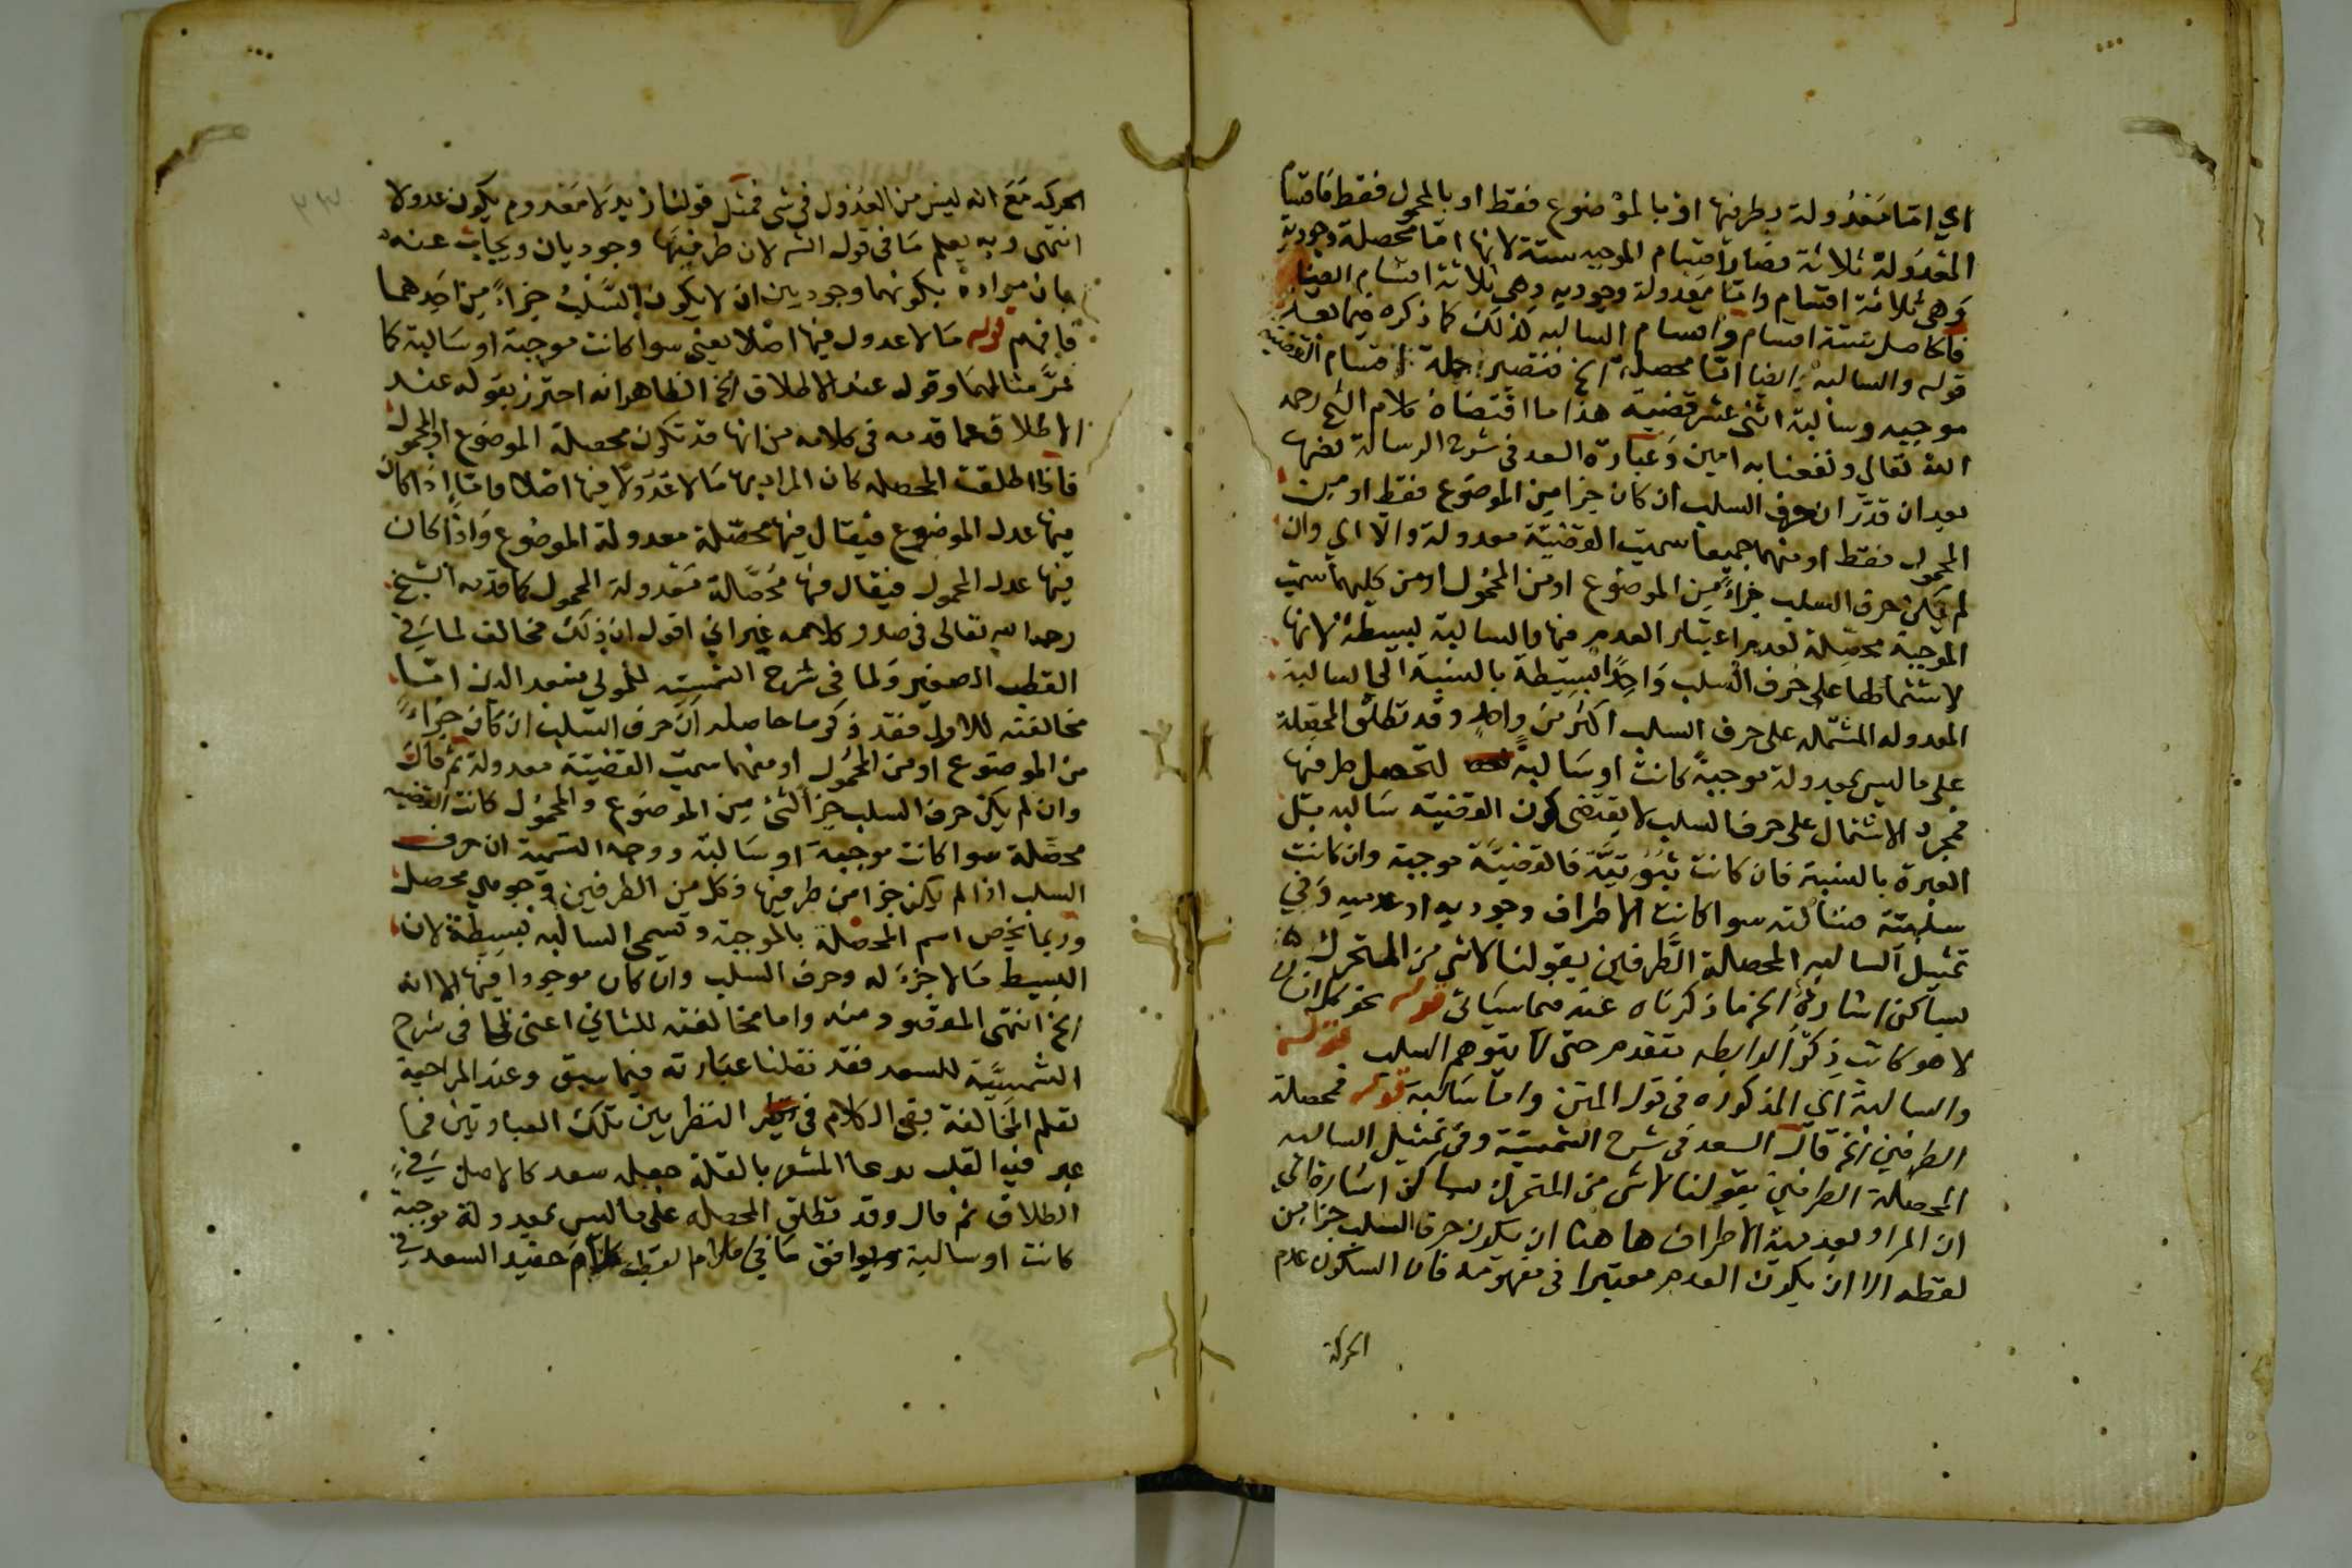 اي اما معدولة بطرفيها او بالموضوع فقط او بالمحمول فقط فاقسام
المعدولة ثلاثة فصار اقسام الموجبه ستة لانها اما محصلة وجودية
وهي ثلاثة اقسام واما معدولة وجوديه وهي ثلاثة اقسام ايضا
فالحاصل ستة اقسام واقسام السالبه كذلك كما ذكره فيما بعد
قوله والسالبه ايضا اما محصلة الخ فتصير جملة اقسام القضية
موجبه وسالبة اثنى عشر قضية هذا ما اقتضاه كلام الشيخ رحمه
الله تعالي ونفعنا به امين وعبارة السعد في شرح الرسالة نصها
بعد ان قدر ان حرف السلب ان كان جزا من الموضوع فقط او من
المحمول فقط او منهما جميعا سميت القضية معدولة والا اي وان
لم يكن حرف السلب جزاء من الموضوع او من المحمول او من كليهما سميت
الموجبة محصلة لعدم اعتبار العدم فيها والسالبة بسيطة لانها
لاشتمالها على حرف السلب واحدا بسيطة بالنسبة الي السالبة
المعدوله المشتمله على حرف السلب اكثر من واحد وقد تطلق المحصلة
على ما ليس بمعدولة موجبة كانت او سالبة لتحصل طرفيها
فمجرد الاشتمال على حرف السلب لا يقتضى كون القضية سالبه بل
العبرة بالنسبة فان كانت ثبوتية فالقضية موجبة وان كانت
سلبية فسالبة سوا كانت الاطراف وجوديه او عدميه وفي
تمثيل السالبه المحصلة الطرفين بقولنا لا شي من المتحرك
بساكن اشارة الخ ما ذكرناه عنه مما سياتي قوله نحو كل انسان
لا هو كاتب ذكر الرابطه متقدم حتى لا يتوهم السلب قوله
والسالبة اي المذكوره في قول المتن واما سالبة قوله فمحصلة
الطرفين الخ قال السعد في شرح الشمسية وفي تمثيل السالبه
المحصلة الطرفين بقولنا لا شي من المتحرك بساكن اشارة الي
ان المراد بعدمية الاطراف هاهنا ان يكون حرف السلب جزا من
لفظه الا ان يكون العدم معتبرا في مفهومه فان السكون عدم
الحركة
الحركه مع انه ليس من العدول في شي فمثل قولنا زيد لا معدوم يكون عدولا
انتهى وبه يعلم ما في قول الشـ لان طرفيها وجوديان ويجاب عنه
بان مراده بكونهما وجوديين ان لا يكون السلب جزاء من احدهما
فافهم قوله ما لا عدول فيها اصلا يعني سوا كانت موجبة او سالبة كما
مر مثالهما وقوله عند الاطلاق الخ الظاهر انه احترز بقوله عند
الاطلاق عما قدمه في كلامه من انها قد تكون محصلة الموضوع او المحمول
فاذا اطلقت المحصله كان المراد بها ما لا عدولا فيها اصلا واما اذا كان
فيها عدل الموضوع فيقال فيها محصلة معدولة الموضوع واذا كان
فيها عدل المحمول فيقال فيها محصلة معدولة المحمول كما قدمه الشيخ
رحمه الله تعالى في صدر كلامه غير اني اقول ان ذلك مخالف لما في
القطب الصغير ولما في شرح الشمسية للمولي سعد الدين اما
مخالفته للاول فقد ذكر ما حاصله ان حرف السلب ان كان جزاء
من الموضوع او من المحمول او منهما سميت القضية معدولة ثم قال
وان لم يكن حرف السلب جزا لشئ من الموضوع والمحمول كانت القضيه
محصلة سوا كانت موجبة او سالبة ووجه التسمية ان حرف
السلب اذا لم يكن جزا من طرفيها فكل من الطرفين وجودي محصل
وربما يخص اسم المحصلة بالموجبة وتسمى السالبه بسيطة لان
البسيط ما لا جزء له وحرف السلب وان كان موجودا فيها الا انه
الخ انتهى المقصود منه واما مخالفته للثاني اعنى لما في شرح
الشمسية للسعد فقد نقلنا عبارته فيما سبق وعند المراجعة
تعلم المخالفة بقى الكلام في النظر بين تلك العبارتين فما
عبر فيه القطب بربما المشعر بالقلة جعله سعد كالاصل في
الطلاق ثم قال وقد تطلق المحصله على ما ليس بمعدولة موجبة
كانت او سالبة ويوافق ما في كلام القطب كلام حفيد السعد في